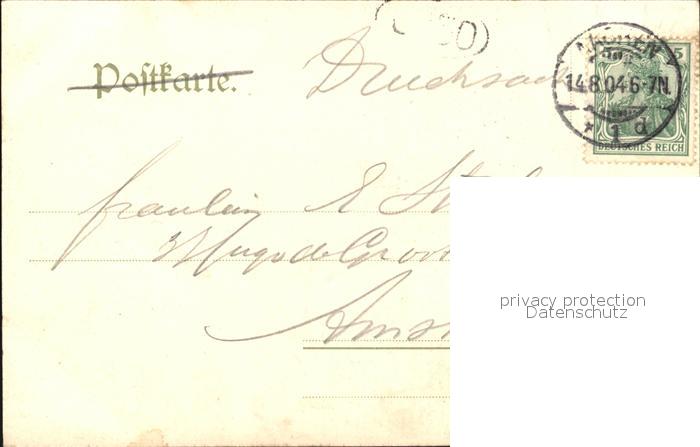 Postkarte.
Drucksa
AACHEN
14.8.04.6-7N.
* 1 d
5
DEUTSCHES REICH
fraulein E St
Hugo de Groot
Ams
privacy protection
Datenschutz